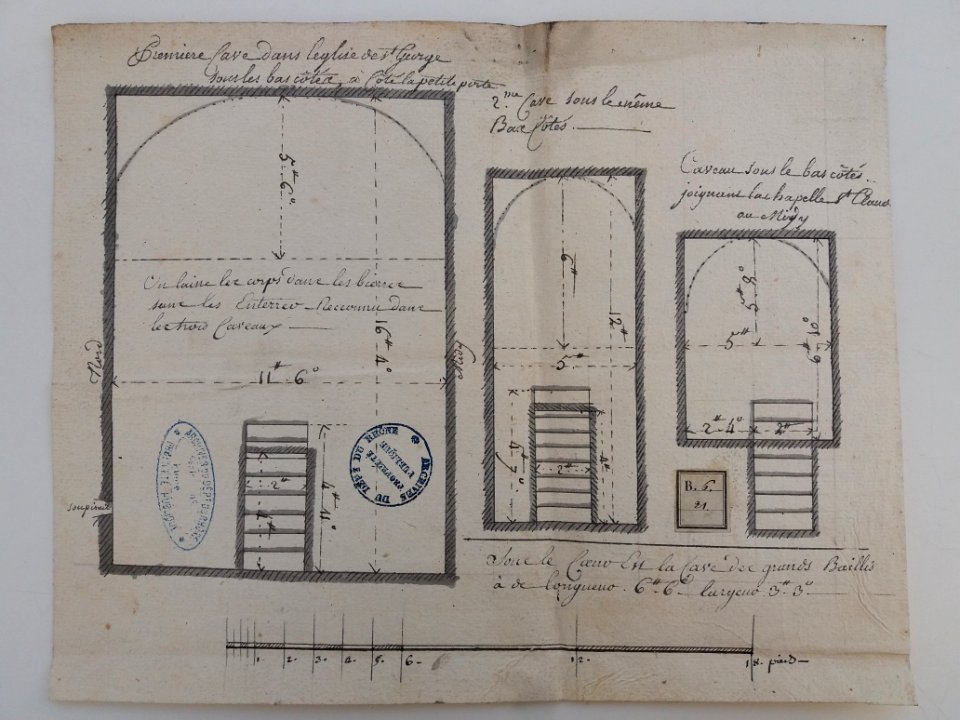 Premiere Cave dans l'eglise de St George
sous les bas côtés, a Côté la petite porte
5" 6°
On laisse les corps dans les bierres
sans les Enterrer. Reconnu dans
les trois Caveaux
16" 4°
Nord
Midy
11" 6°
soupirail
2"
4"
4" 4°
ARCHIVES DU DEPT DU RHONE
PROPRIÉTÉ PUBLIQUE
ARCHIVES DU DEPT DU RHÔNE
PROPRIÉTÉ
PUBLIQUE
2.me Cave sous le même
Bas Côtés
6"
12"
5"
2"
4"
Caveau sous le bas côtés
joignant la chapelle St
au Midy
5" 8°
5"
6" 10°
2" 4°
2"
B. 6.
21.
Sous le Cœur Est la Cave des grands Baillis
à de longueur. 6" 6° largeur 3" 3°
1. 2. 3. 4. 5. 6. 12. 18. pieds